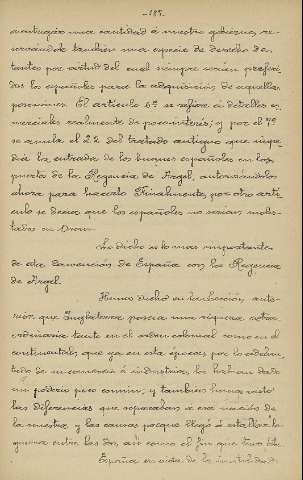 -187-
entregar una cantidad a nuestro gobierno, re-
servándole tambien una especie de derecho de
tanteo por virtud del cual siempre serían preferi-
dos los españoles para la adquisición de aquellas
posesiones. El artículo 6º se refiere á detalles co-
merciales realmente de poco interés; y por el 7º
se anula el 22 del tratado antiguo que impe-
día la entrada de los buques españoles en los
puertos de la Regencia de Argel, autorizándolos
ahora para hacerlo. Finalmente, por otro artí-
culo se decía que los españoles no serían moles-
tados en Oran.
Lo dicho es lo mas importante
de la convención de España con la Regencia
de Argel.
Hemos dicho en la lección ante-
rior que Inglaterra poseia una riqueza extra
ordinaria tanto en el orden colonial como en el
continental, que ya en esta época por lo adelan-
tado de su comercio é industria, la habian dado
un poderio poco comun; y tambien hemos visto
las diferencias que separaban a esa nación de
la nuestra y las causas porque llegó á estallar la
guerra entre las dos, asi como el fin que tuvo esta.
España en vista de la